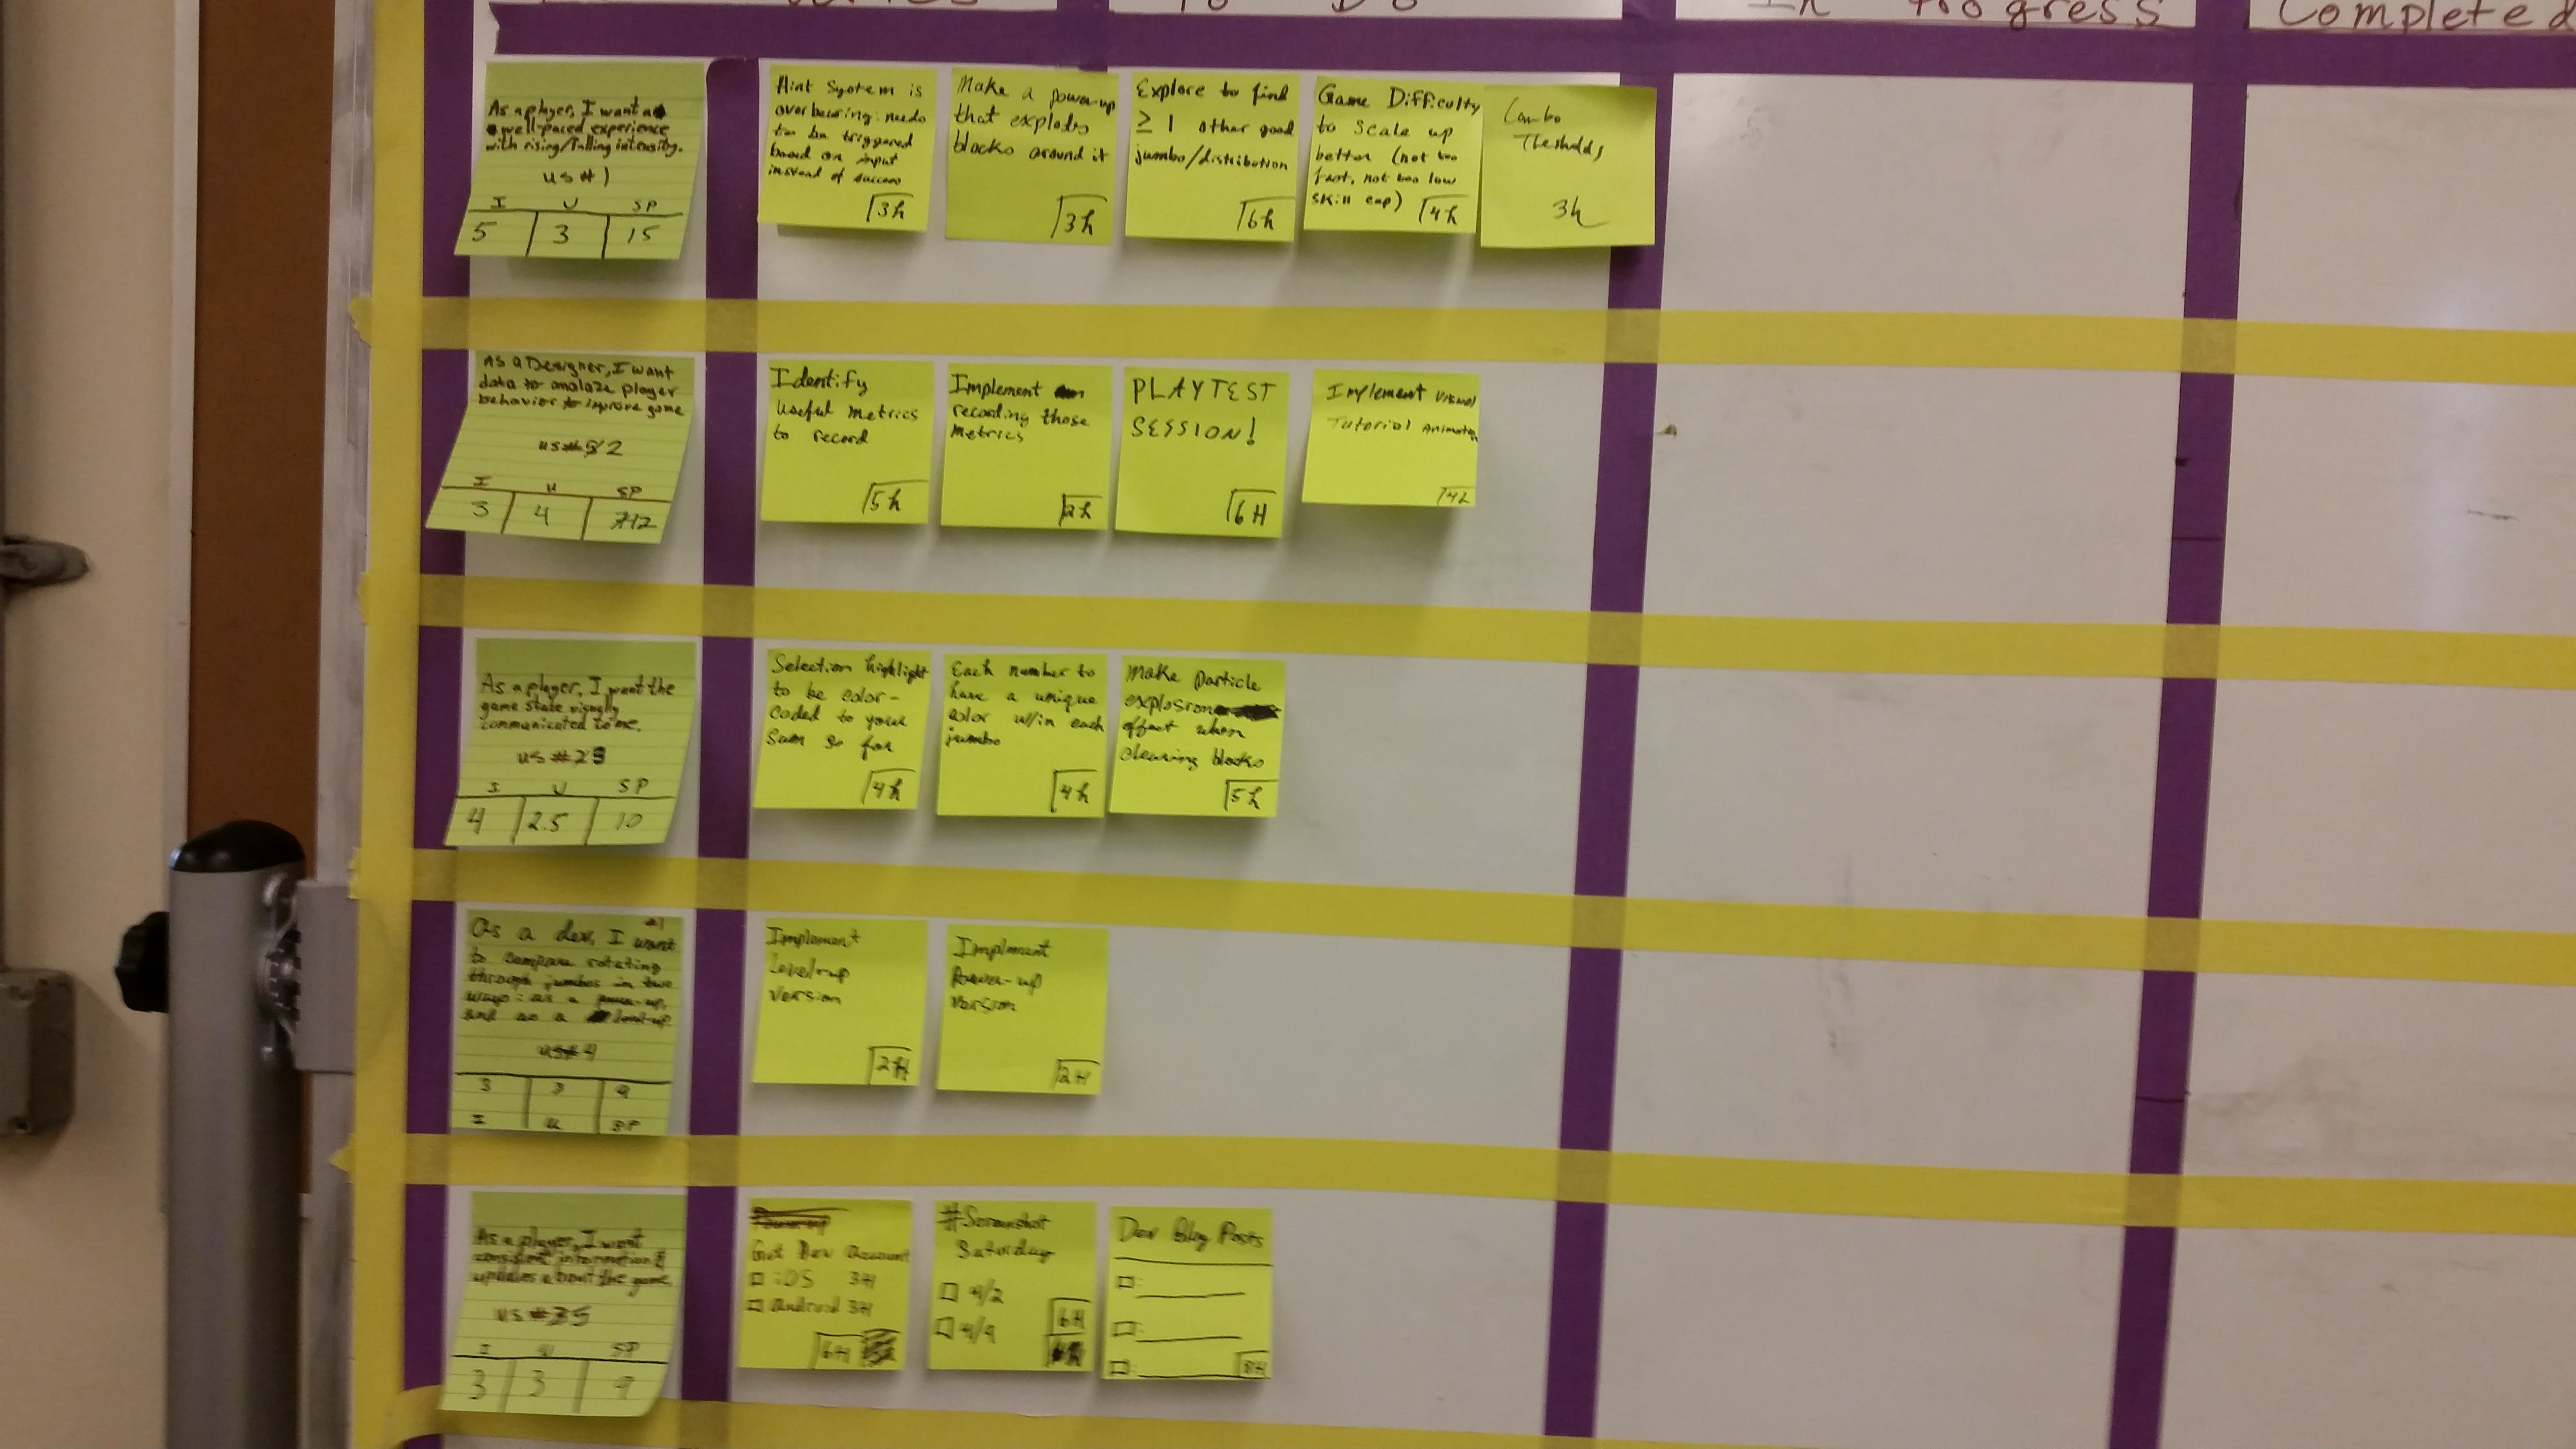 To Do
In Progress
Completed
As a player, I want a
well-paced experience
with rising/falling intensity.
us #1
I U SP
5 3 15
Hint System is
overbearing. needs
to be triggered
based on input
instead of success
3h
Make a power-up
that explodes
blocks around it
3h
Explore to find
≥ 1 other good
jumbo/distribution
6h
Game Difficulty
to scale up
better (not too
fast, not too low
skill cap)
4h
Combo
Thesholds
3h
As a Designer, I want
data to analaze player
behavior to improve game
us# 2
I U SP
3 4 12
Identify
useful metrics
to record
5h
Implement
recording those
metrics
2h
PLAYTEST
SESSION!
6H
Implement visual
Tutorial Animation
4h
As a player, I want the
game state visually
communicated to me.
us #3
I U SP
4 2.5 10
Selection highlight
to be color-
coded to your
sum so far
4h
Each number to
have a unique
color w/in each
jumbo
4h
Make particle
explosion
effect when
clearing blocks
5h
As a dev, I want
to compare rotating
through jumbos in two
ways: as a power-up,
and as a level-up
us#4
3 3 9
I U SP
Implement
Level-up
version
2H
Implment
Power-up
version
2H
As a player, I want
consistent information &
updates about the game
us #5
I U SP
3 3 9
Get Dev Account
iOS 3H
Android 3H
6H
#Screenshot
Saturday
4/2
4/9
6H
Dev Blog Posts
8H